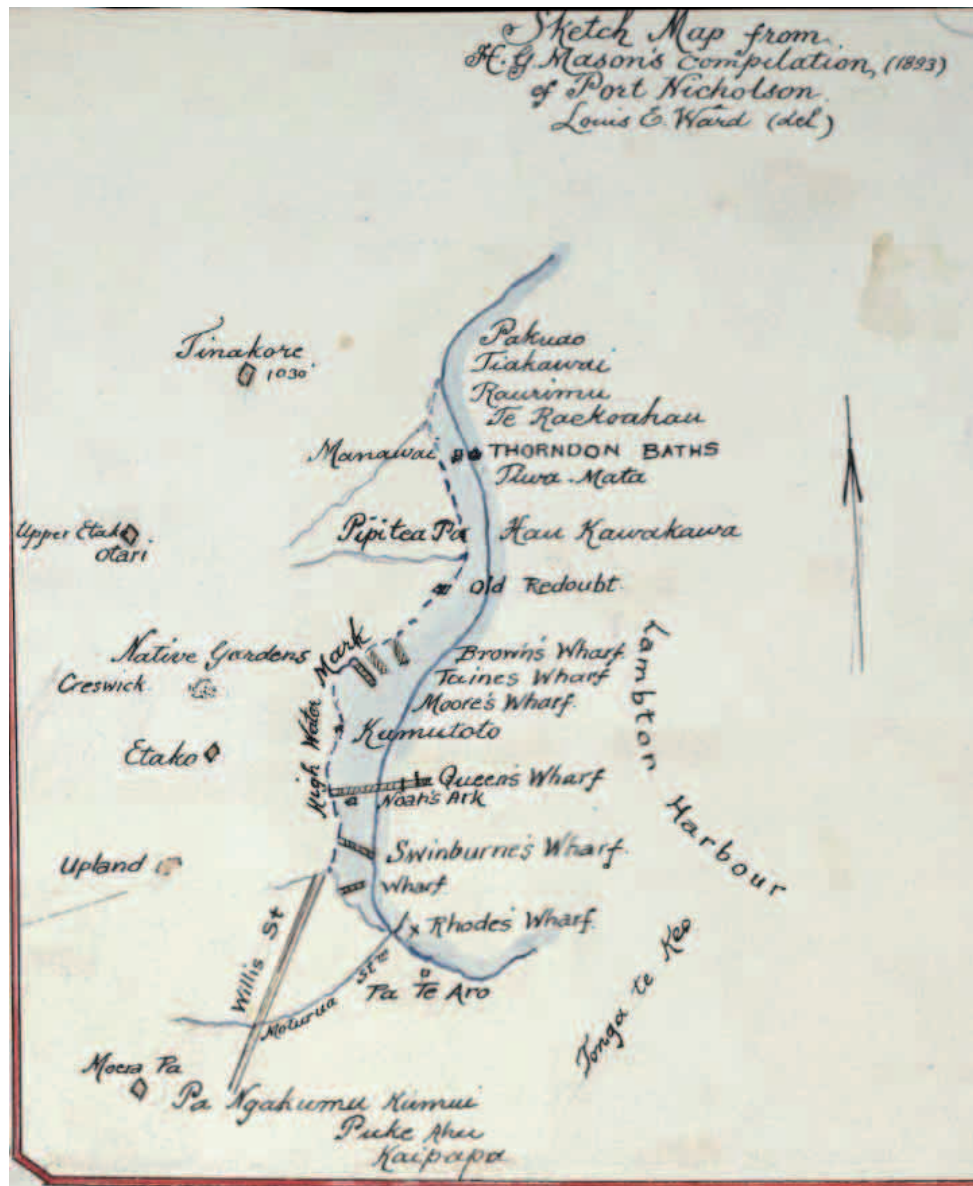 Sketch Map from
H. G. Mason's compilation, (1893)
of Port Nicholson.
Louis E. Ward (del)
Pakuao
Tinakore
1030
Tiakawai
Raurimu
Te Raekoahau
Manawai
THORNDON BATHS
Tiwa-Mata
Upper Etako
Otari
Pipitea Pa
Hau Kawakawa
Old Redoubt.
Native Gardens
Creswick
High Water Mark
Brown's Wharf.
Taines Wharf
Moore's Wharf.
Lambton
Harbour
Kumutoto
Etako
Queen's Wharf
Noah's Ark
Upland
Swinburne's Wharf.
Wharf
Willis St
Rhodes' Wharf.
Moturua Stm
Pa Te Aro
Tonga te Keo
Moera Pa
Pa Ngakumu Kumui
Puke Ahu
Kaipapa